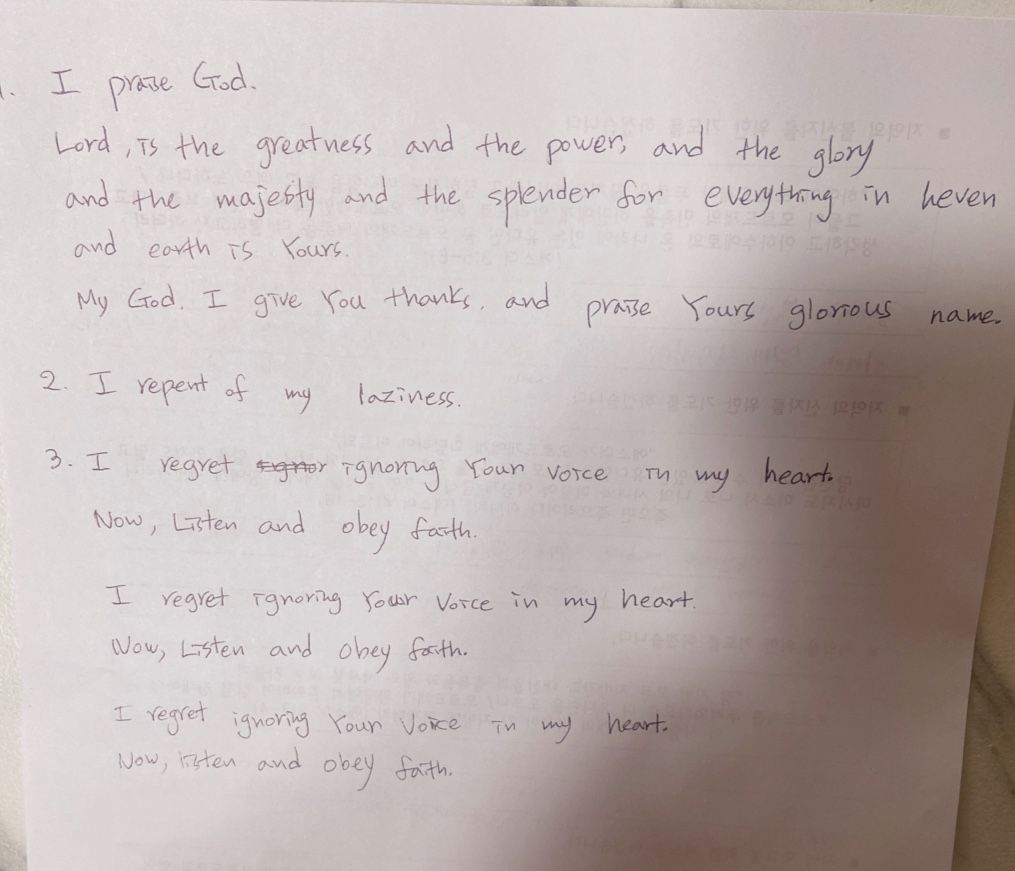 1. I praise God.
Lord, is the greatness and the power, and the glory
and the majesty and the splender for everything in heven
and earth is Yours.
My God. I give You thanks. and praise Yours glorious name.
2. I repent of my laziness.
3. I regret ignoring Your voice in my heart.
Now, Listen and obey faith.
I regret ignoring Your Voice in my heart.
Now, Listen and obey faith.
I regret ignoring Your Voice in my heart.
Now, listen and obey faith.